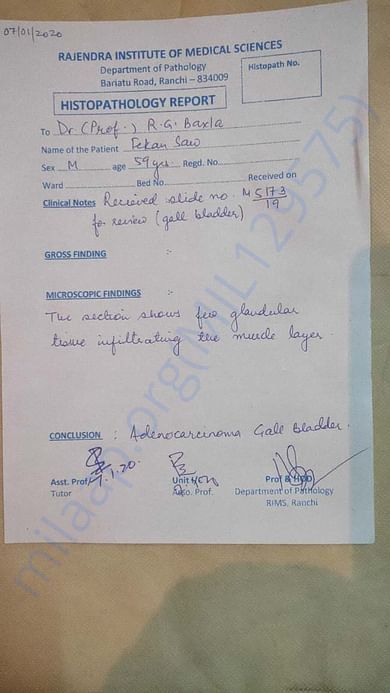 07/01/2020
RAJENDRA INSTITUTE OF MEDICAL SCIENCES
Department of Pathology
Bariatu Road, Ranchi – 834009
Histopath No.
HISTOPATHOLOGY REPORT
To Dr. (Prof.) R.G. Baxla
Name of the Patient Tekan Saw
Sex M age 59 yrs Regd. No.
Ward Bed No. Received on
Clinical Notes Recieved slide no. M 5173/19
for review (gall bladder)
GROSS FINDING :-
MICROSCOPIC FINDINGS :-
The section shows few glandular
tissue infiltrating the muscle layer.
CONCLUSION : Adenocarcinoma Gall Bladder.
Asst. Prof/ Unit HOD Prof & HOD
Tutor Asso. Prof. Department of Pathology
RIMS, Ranchi
milaap.org(MIL129575)